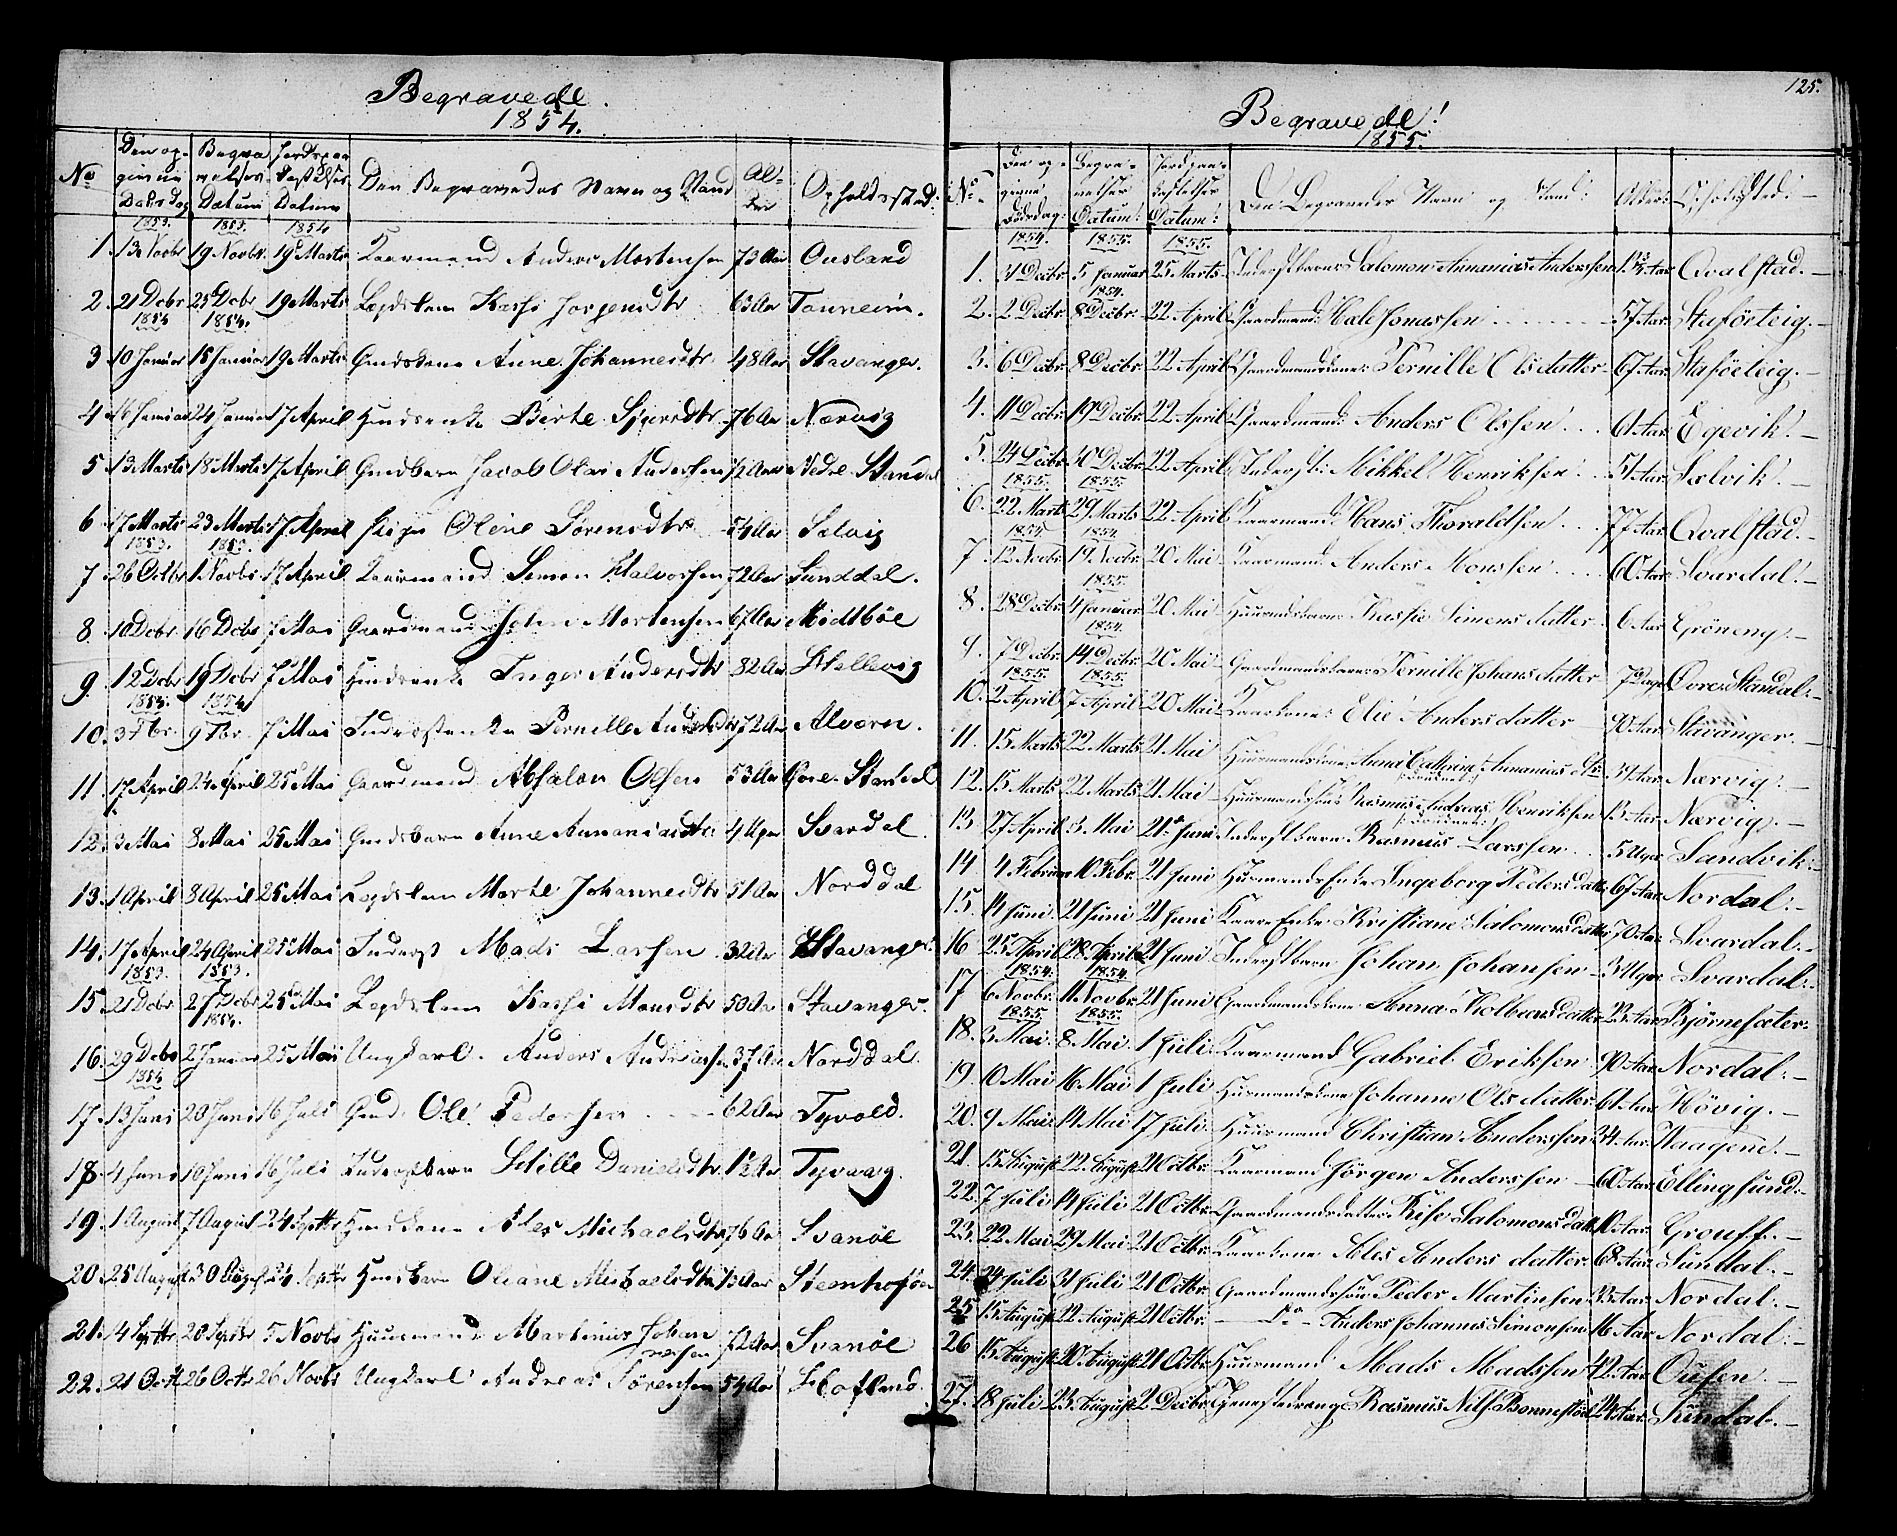 Begravede.
1854.
No Den op-givne Dødsdag Begra velses Datum Jordspaa kastelses Datum Den Begravedes Navn og Stand Al-der Opholdssted.
1853. 1853. 1854
1. 13 Novbr 19 Novbr. 19 Marts Kaarmand Anders Mortensen 73 Aar Ousland
2. 21 Decbr 25 Decbr 19 Marts Lægdslem Kassi Jørgensdtr 63 Aar Tonneim.
1854 1854.
3 10 Januar 15 Januar 19 Marts Anne Johannesdtr 48 Aar Stavanger.
4 16 Januar 24 Januar 17 April Huusenke Berte Sjversdtr 76 Aar Nærvig
5 13 Marts 18 Marts 17 April Jacob Olai Andersen 1/2 Aar Nedre Standal
6 17 Marts 23 Marts 17 April Pige Oline Sørensdtr 54 Aar Selvig
1853. 1853.
7 26 Octbr 1 Novbr 17 April Kaarmand Simon Halvorsen 72 Aar Sunddal.
8 10 Decbr 16 Decbr 7 Mai Gaardmand John Mortensen 67 Aar Midtbøe
9 12 Decbr 19 Decbr 7 Mai Huusenke Inger Andersdtr 82 Aar Hellevig
1854. 1854
10. 3 Fbr. 9 Fbr. 7 Mai Inderstenke Pernille Andersdtr 72 Aar Alvorn.
11. 17 April 24 April 25 Mai Gaardmand Absalon Olsen 53 Aar Øvre Standal
12. 3 Mai 8 Mai 25 Mai Anne Annaniasdtr 4 Uger Svardal.
13. 1 April 8 April 25 Mai Lægdslem Marte Johannesdtr 51 Aar Norddal
14. 17 April 24 April 25 Mai Inderst Mads Larsen 32 Aar Stavanger
1853. 1853.
15. 21 Decbr 27 Decbr 25 Mai Lægdslem Kassi Monsdtr 50 Aar Stavanger.
1854.
16. 29 Decbr 2 Januar 25 Mai Ungkarl Anders Andreassen 37 Aar Norddal.
1854
17. 13 Juni 20 Juni 16 Juli Ole Pedersen 62 Aar Tyvold.
18 4 Juni 10 Juni 16 Juli Inderstbarn Sille Danielsdtr. 1 1/2 Aar Tyvaag.
19. 1 August 7 August 24 Septbr Huuskone Ales Michaelsdtr 76 Aar Svanøe
20. 25 August 30 August 24 Septbr Huusbarn Oliane Michaelsdtr 13 Aar
21. 4 Septbr 20 Septbr 5 Novbr Huusmand Martinius Johan
nesen 72 Aar Svanøe
22. 21 Octbr 26 Octbr 26 Novbr Ungkarl Andreas Sørensen 54 Aar Hofland.
125.
Begravede!
1855.
No. Den op-givne Dødsdag: Begra-velses Datum: Jordpaa-kastelses Datum: Den Begravedes Navn og Stand: Alder: Opholdsted:
1854. 1855. 1855.
1. 31 Decbr. 5 Januar 25 Marts. Inderstbarn: Salomon Annanias Anderssen Aar Qvalstad.
1854.
2. 2 Decbr. 8 Decbr. 22 April Gaardmand: Hale Jonassen 57 Aar. Staføeteig.
3. 6 Decbr. 8 Decbr. 22 April Gaardmandskone: Pernille Olsdatter 67 Aar Staføeteig.
4. 11 Decbr. 19 Decbr. 22 April Gaardmand: Anders Olssen. 61 Aar. Egevik.
5. 24 Decbr. 30 Decbr. 22 April Inderst: Mikkel Henriksen 51 Aar. Selvik.
1855. 1855.
6. 22 Marts 29 Marts 22 April Kaarmand Hans Thoraldsen 77 Aar. Qvalstad.
1854. 1854.
7 12 Novbr. 19 Novbr. 20 Mai Kaarmand: Anders Monssen 60 Aar. Svardal.
1855.
8. 28 Decbr. 4 Januar 20 Mai Huusmandsbarn: Kassie Simensdatter 6 Aar Grøneng.
1854.
9. 7 Decbr. 14 Decbr. 20 Mai Gaardmandsbarn: Pernille Johansdatter 7 Dage Øvre Standal.
1855. 1855.
10. 2 April 7 April 20 Mai Kaarkone: Elie Andersdatter 90 Aar. Stavanger.
11. 15 Marts 22 Marts 21 Mai Anna Cathrine Annanias Dtr. 39 Aar. Nærvig.
12. 15 Marts 22 Marts 21 Mai Huusmandssøn: Rasmus Andreas Henriksen 13 Aar. Nærvig.
13 27 April 3 Mai 21 Juni Inderstbarn Rasmus Larssen 5 Uger Sandvik.
14 4 Februar 10 Febr. 21 Juni HusmandsEnke Ingeborg Pedersdatter 67 Aar. Nordal.
15. 14 Juni 21 Juni 21 Juni Kaar Enke Kristiane Salomonsdatter 70 Aar. Svardal.
16 25 April 28 April 21 Juni Inderstbarn Johan Johansen 3 Uger Svardal.
1854. 1854.
17 6 Novbr. 11 Novbr. 21 Juni Gaardmandskone Anna Kolbeensdatter 23 Aar. Bjørnesæter.
1855. 1855.
18. 3 Mai. 8 Mai. 1 Juli. Kaarmand Gabriel Eriksen 90 Aar. Nordal.
19. 10 Mai 16 Mai 1 Juli Husmandskone Johanne Olsdatter 61 Aar. Høvig.
20. 9 Mai 14 Mai 17 Juli. Huusmand Christian Anderssen 34 Aar. Haagene.
21. 15 August. 22 August. 21 Octbr. Kaarmand Jørgen Anderssen 60 Aar. Ellingsund.
22. 7 Juli 14 Juli 21 Octbr. Gaardmandsdatter Salomonsdatt 10 Aar. Grouff.
23. 22 Mai 29 Mai 21 Octbr. Kaarkone Ales Andersdatter 68 Aar. Sundal.
24. 24 Juli 31 Juli 21 Octbr. Gaardmandssøn Peder Martinsen 33 Aar. Nordal.
25 15 August 22 August 21 Octbr. Do Anders Johannes Simonsen 16 Aar. Nordal.
26 15 August 20 August 21 Octbr. Huusmand Mads Madssen 42 Aar. Ousen.
27. 18 Juli 23 August 2 Decbr. Tjenestedreng Rasmus Nils 24 Aar. Sundal.